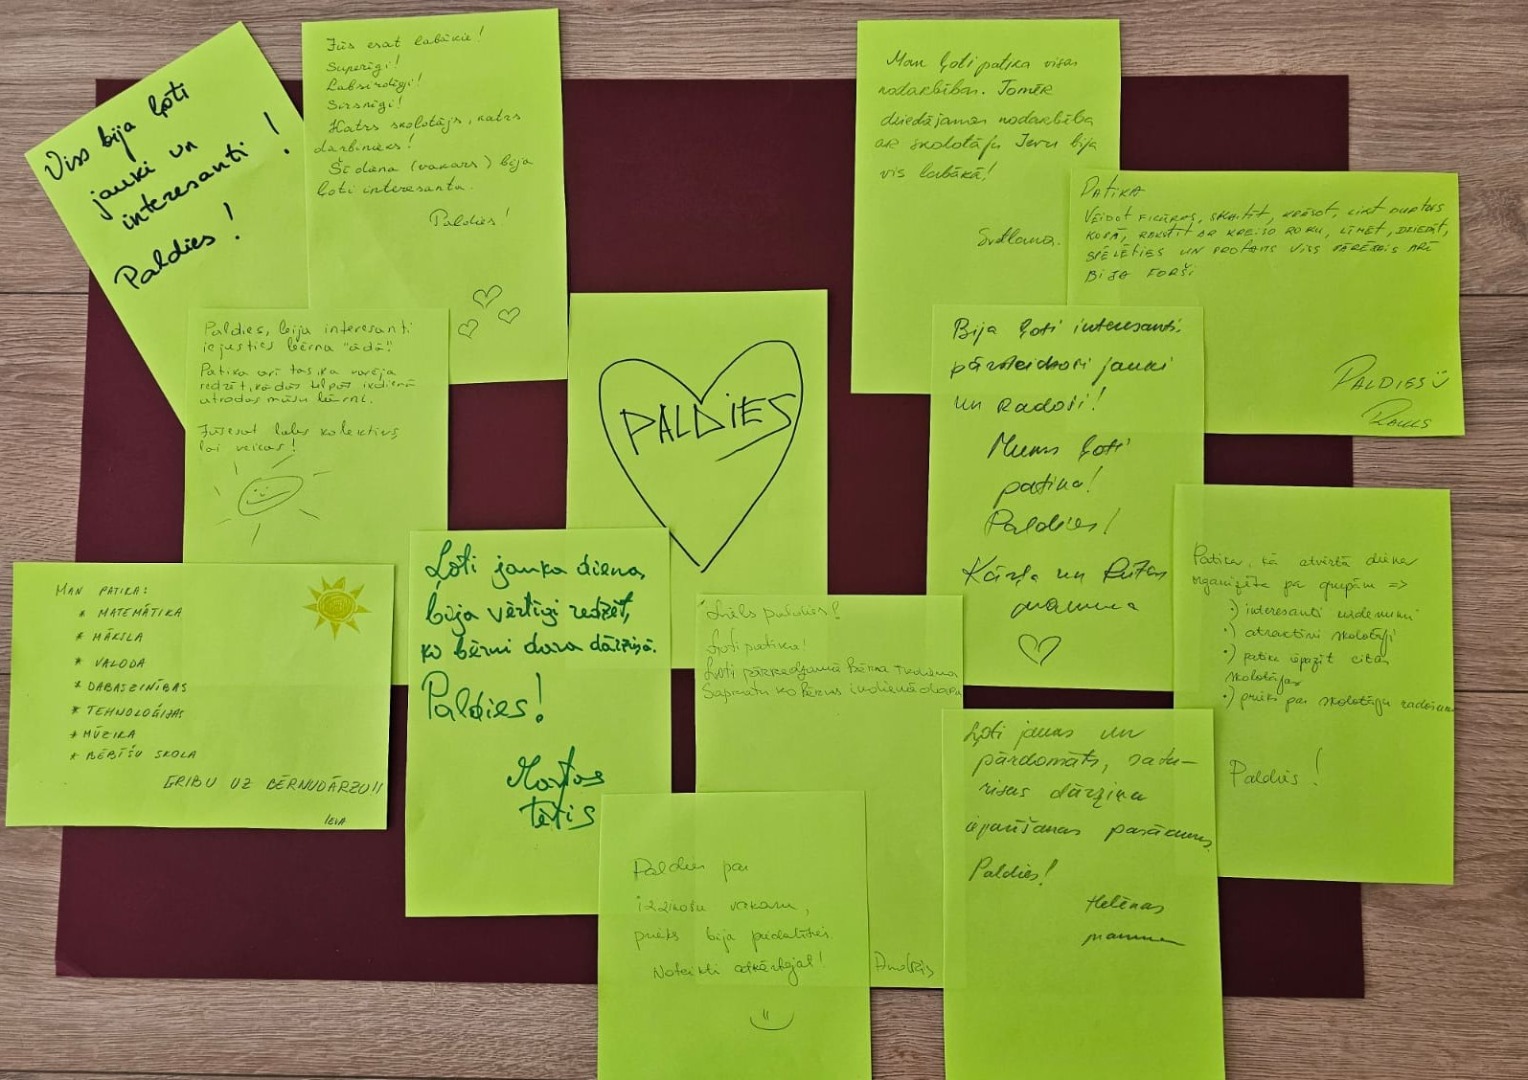 Viss bija ļoti
jauki un
interesanti !
Paldies !
Jūs esat labākie!
Superīgi!
Labsirdīgi!
Sirsnīgi!
Katrs skolotājs, katrs
darbinieks!
Šī diena (vakars) bija
ļoti interesanta.
Paldies!
Man ļoti patika visas
nodarbības. Tomēr
dziedājamā nodarbība
ar skolotāju Ievu bija
vis labākā!
Svetlana.
PATIKA
VEIDOT FIGŪRAS, SKAITĪT, KRĀSOT, LIKT BURTUS
KOPĀ, RAKSTĪT AR KREISO ROKU, LĪMĒT, DZIEDĀT,
SPĒLĒTIES UN PROTAMS VISS PĀRĒJAIS ARĪ
BIJA FORŠI
PALDIES Ü
Paldies, bija interesanti
iejusties bērna "ādā".
Patika arī tas, ka varēja
redzēt, kādās telpās ikdienā
atrodas mūsu bērni.
Jūs esat labs kolektīvs,
lai veicas!
PALDIES
Bija ļoti interesanti,
pārsteidzoši jauki
un radoši!
Mums ļoti
patika!
Paldies!
Kārļa un Rūtas
mamma
MAN PATIKA:
* MATEMĀTIKA
* MĀKSLA
* VALODA
* DABASZINĪBAS
* TEHNOLOĢIJAS
* MŪZIKA
* BĒBĪŠU SKOLA
GRIBU UZ BĒRNUDĀRZU!!
IEVA
Ļoti jauka diena,
bija vērtīgi redzēt,
ko bērni dara dārziņā.
Paldies!
Martas
tētis
Liels paldies!
Ļoti patika!
Ļoti pārredzamā bērna ikdiena
Sapratu ko bērns ikdienā dara
Patika, kā atvērtā diena
organizēta pa grupām =>
·) interesanti uzdevumi
·) atraktīvi skolotāji
·) patika iepazīt citas
skolotājas
·) prieks par skolotāju radošumu
Paldies!
Ļoti jauks un
pārdomāts, satu-
risks dārziņa
iepazīšanas pasākums.
Paldies!
Helēnas
mamma
Paldies par
izzinošu vakaru,
prieks bija piedalīties.
Noteikti atkārtojat!